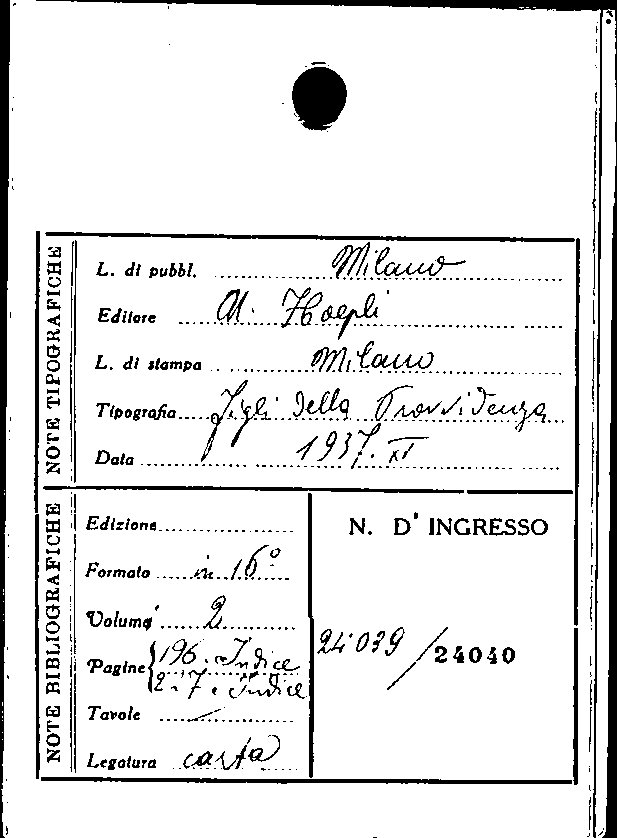 NOTE TIPOGRAFICHE
L. di pubbl. Milano
Editore U. Hoepli
L. di stampa Milano
Tipografia Figli della Provvidenza
Data 1937. XV
NOTE BIBLIOGRAFICHE
Edizione
Formato in 16°
Volume 2
Pagine 196. Indice
Indice
Tavole
Legatura carta
N. D' INGRESSO
24039 / 24040